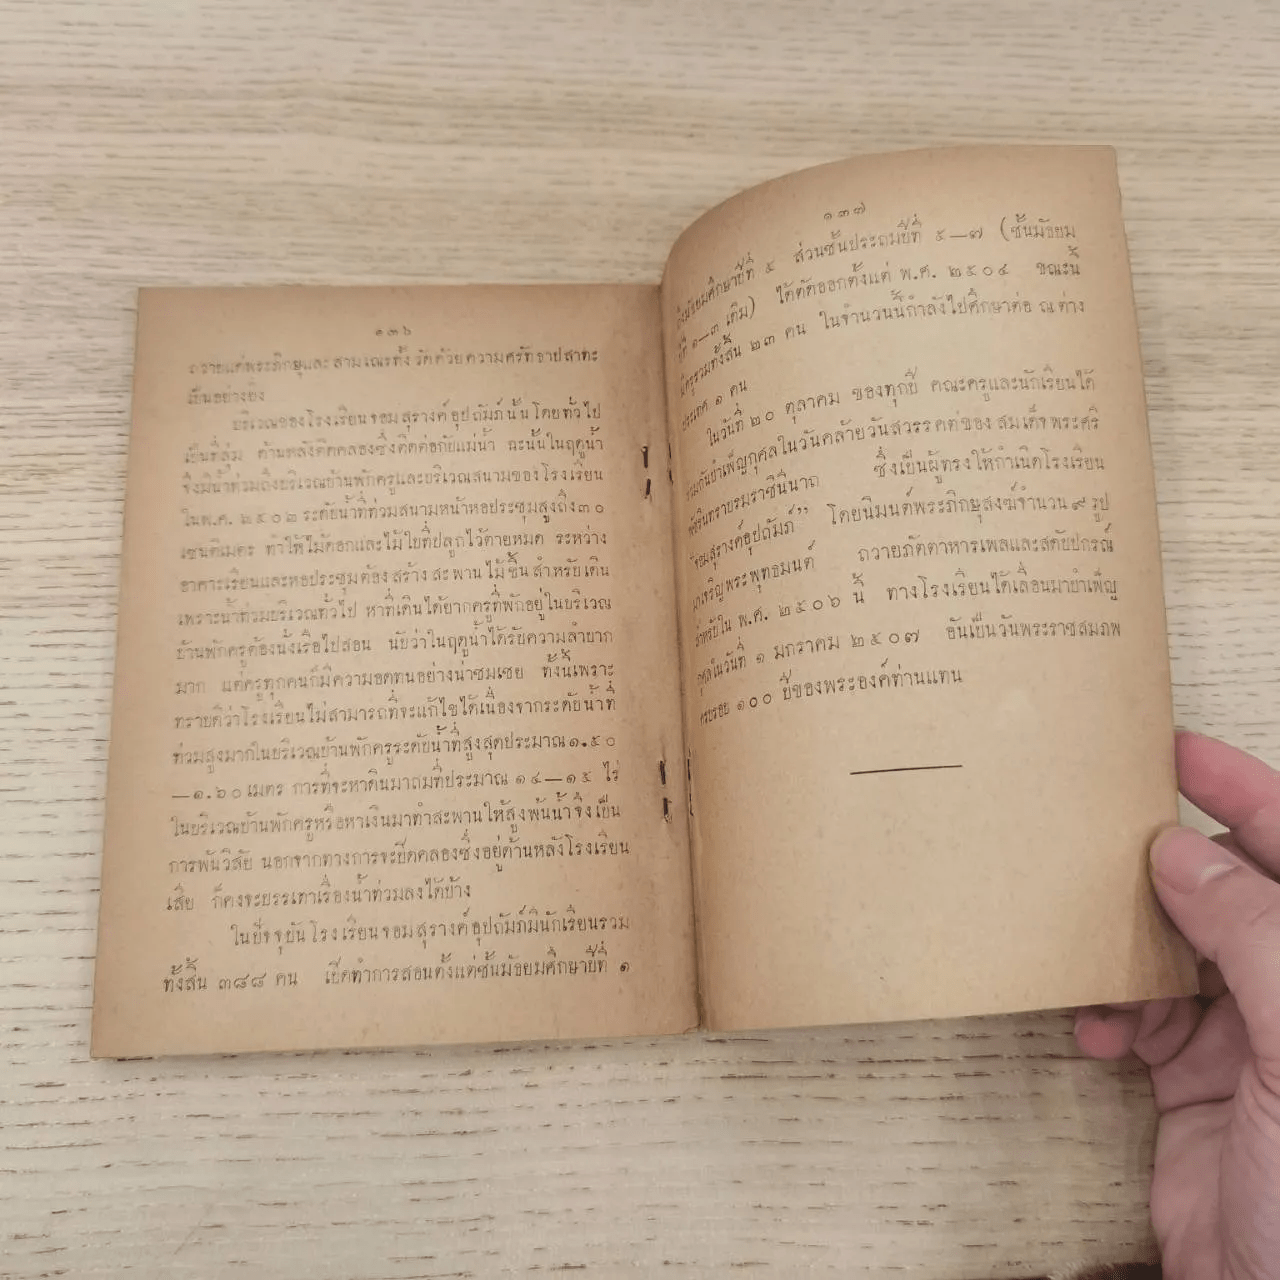 ๑๓๖
ถวายแด่พระภิกษุและสามเณรทั้งวัดด้วยความศรัทธาปสาทะ
เป็นอย่างยิ่ง
บริเวณของโรงเรียนจอมสุรางค์อุปถัมภ์นั้นโดยทั่วไป
เป็นที่ลุ่ม ด้านหลังติดคลองซึ่งติดต่อกับแม่น้ำ ฉะนั้นในฤดูน้ำ
จึงมีน้ำท่วมถึงบริเวณบ้านพักครูและบริเวณสนามของโรงเรียน
ในพ.ศ. ๒๕๐๒ ระดับน้ำที่ท่วมสนามหน้าหอประชุมสูงถึง๓๐
เซนติเมตร ทำให้ไม้ดอกและไม้ใบที่ปลูกไว้ตายหมด ระหว่าง
อาคารเรียนและหอประชุมต้องสร้างสะพานไม้ขึ้นสำหรับเดิน
เพราะน้ำท่วมบริเวณทั่วไป หาที่เดินได้ยากครูที่พักอยู่ในบริเวณ
บ้านพักครูต้องนั่งเรือไปสอน นับว่าในฤดูน้ำได้รับความลำบาก
มาก แต่ครูทุกคนก็มีความอดทนอย่างน่าชมเชย ทั้งนี้เพราะ
ทราบดีว่าโรงเรียนไม่สามารถที่จะแก้ไขได้เนื่องจากระดับน้ำที่
ท่วมสูงมากในบริเวณบ้านพักครูระดับน้ำที่สูงสุดประมาณ๑.๕๐
—๑.๖๐ เมตร การที่จะหาดินมาถมที่ประมาณ ๑๔—๑๕ ไร่
ในบริเวณบ้านพักครูหรือหาเงินมาทำสะพานให้สูงพ้นน้ำจึงเป็น
การพ้นวิสัย นอกจากทางการจะปิดคลองซึ่งอยู่ด้านหลังโรงเรียน
เสีย ก็คงจะบรรเทาเรื่องน้ำท่วมลงได้บ้าง
ในปัจจุบันโรงเรียนจอมสุรางค์อุปถัมภ์มีนักเรียนรวม
ทั้งสิ้น ๓๘๘ คน เปิดทำการสอนตั้งแต่ชั้นมัธยมศึกษาปีที่ ๑
๑๓๗
ถึงมัธยมศึกษาปีที่ ๕ ส่วนชั้นประถมปีที่ ๕—๗ (ชั้นมัธยม
ปีที่ ๑—๓ เดิม) ได้ตัดออกตั้งแต่ พ.ศ. ๒๕๐๔ ขณะนี้
มีครูรวมทั้งสิ้น ๒๓ คน ในจำนวนนี้กำลังไปศึกษาต่อ ณ ต่าง
ประเทศ ๑ คน
ในวันที่ ๒๐ ตุลาคม ของทุกปี คณะครูและนักเรียนได้
ร่วมกันบำเพ็ญกุศลในวันคล้ายวันสวรรคตของ สมเด็จพระศรี
พัชรินทราบรมราชินีนาถ ซึ่งเป็นผู้ทรงให้กำเนิดโรงเรียน
“จอมสุรางค์อุปถัมภ์” โดยนิมนต์พระภิกษุสงฆ์จำนวน ๙ รูป
มาเจริญพระพุทธมนต์ ถวายภัตตาหารเพลและสดับปกรณ์
สำหรับใน พ.ศ. ๒๕๐๖ นี้ ทางโรงเรียนได้เลื่อนมาบำเพ็ญ
กุศลในวันที่ ๑ มกราคม ๒๕๐๗ อันเป็นวันพระราชสมภพ
ครบรอบ ๑๐๐ ปีของพระองค์ท่านแทน